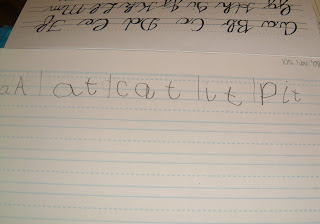 Aa Bb Cc Dd Ee Ff
Gg Hh Ii Jj Kk Ll Mm
aA at cat it Pit